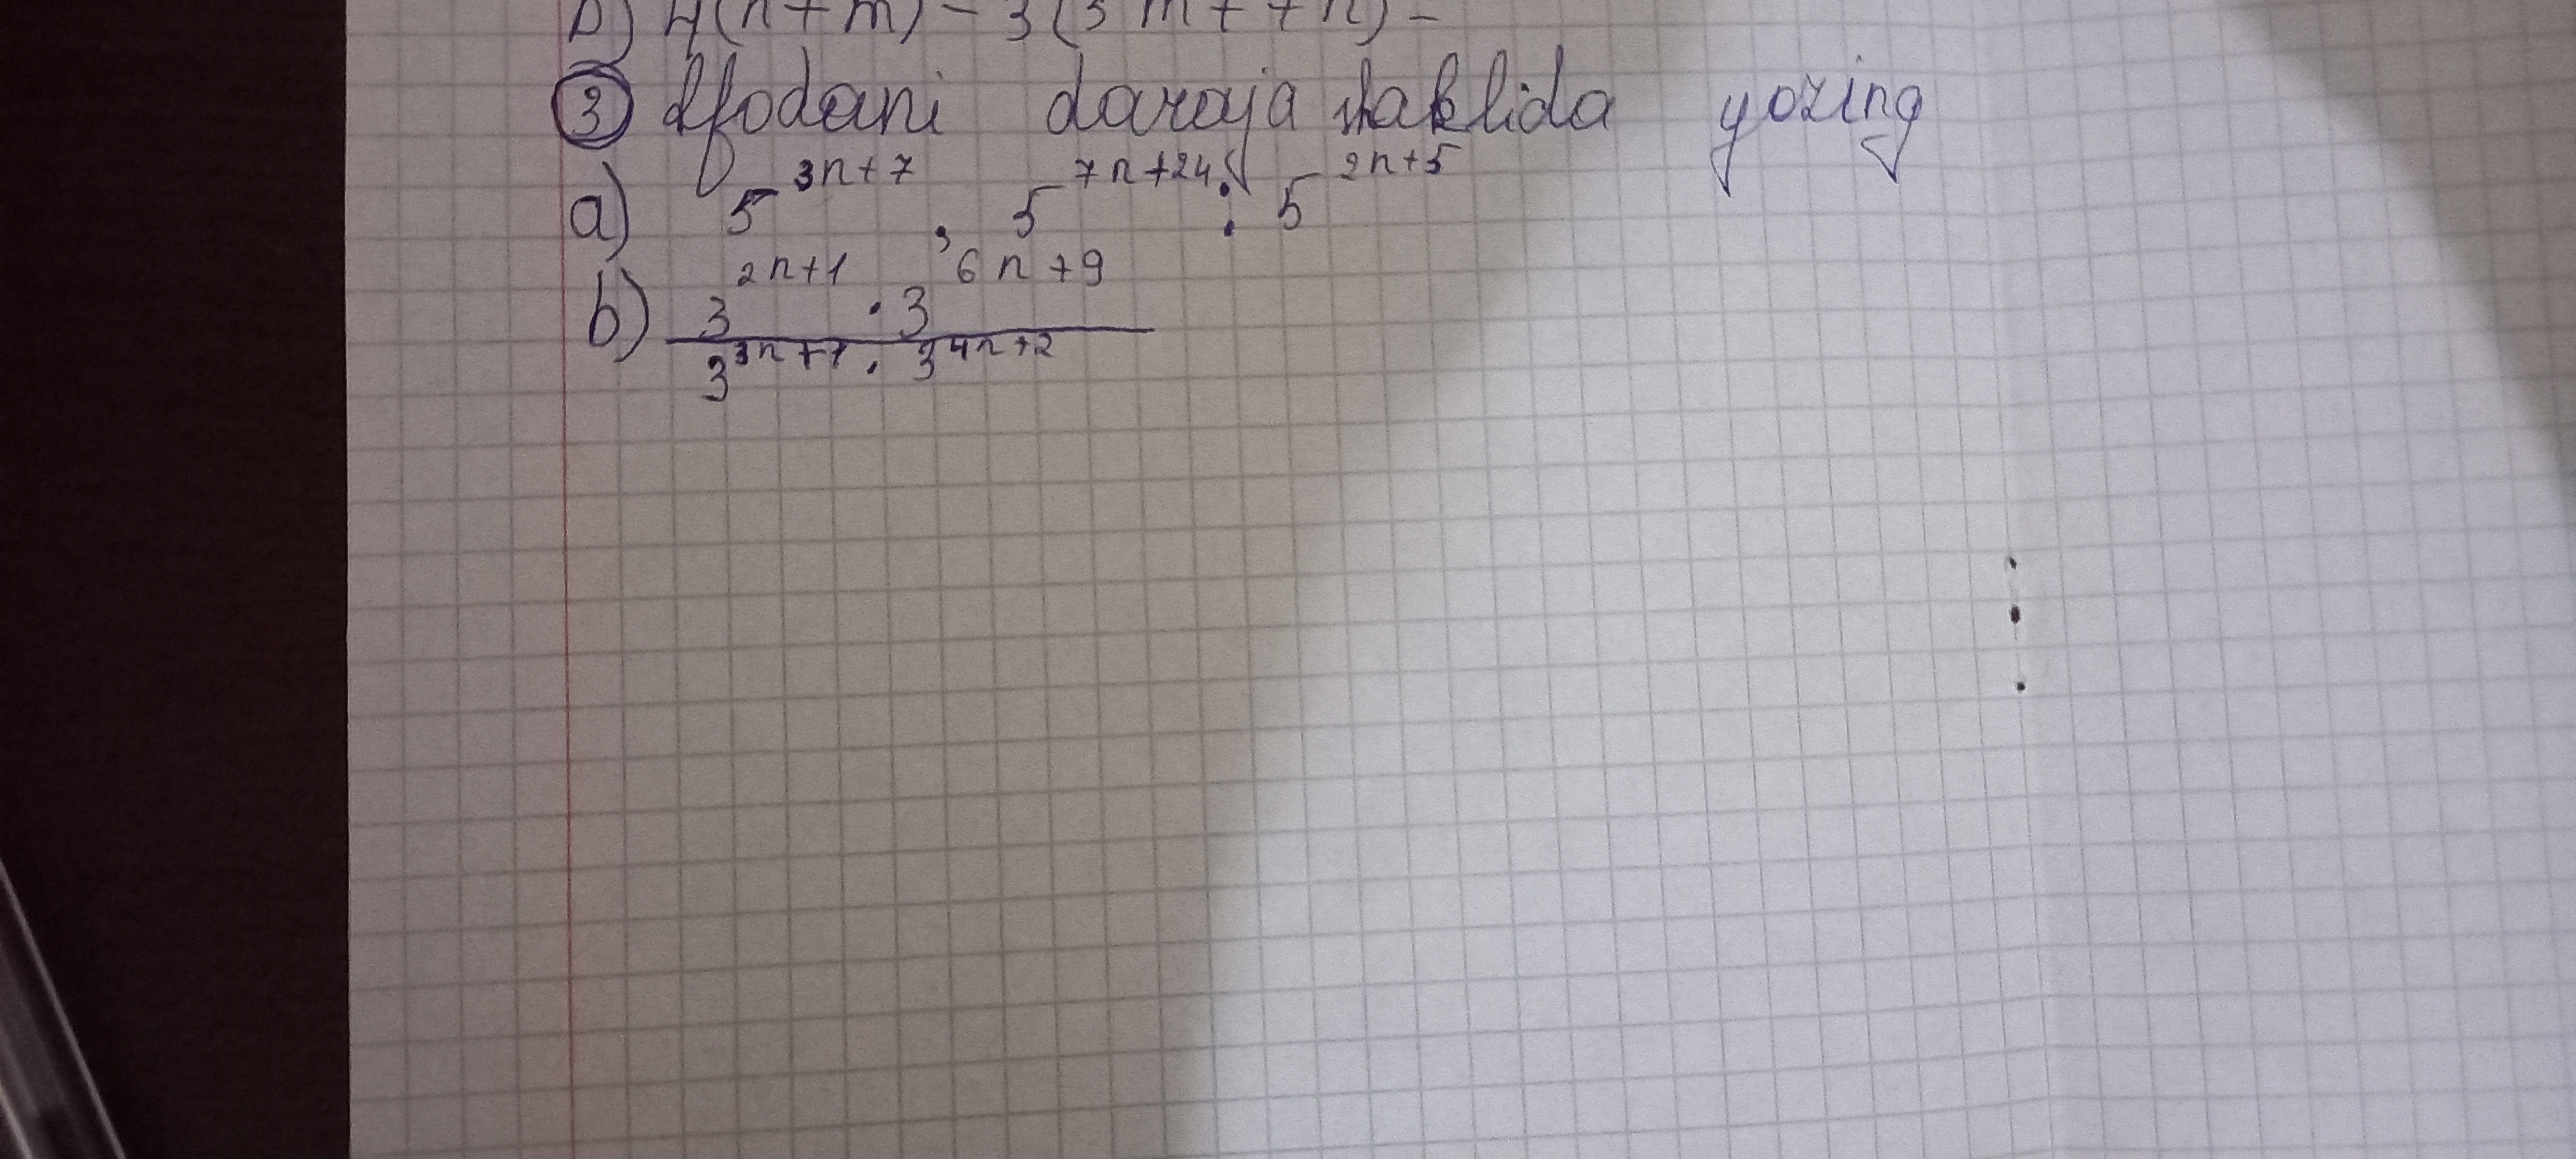 b) 4(n+m)-3(3m++n)-
③ Ifodani daraja shaklida yozing
a) 5^{3n+7} · 5^{7n+24} · 5^{2n+5}
b) \frac{3^{2n+1} · 3^{6n+9}}{3^{3n+1} · 3^{4n+2}}